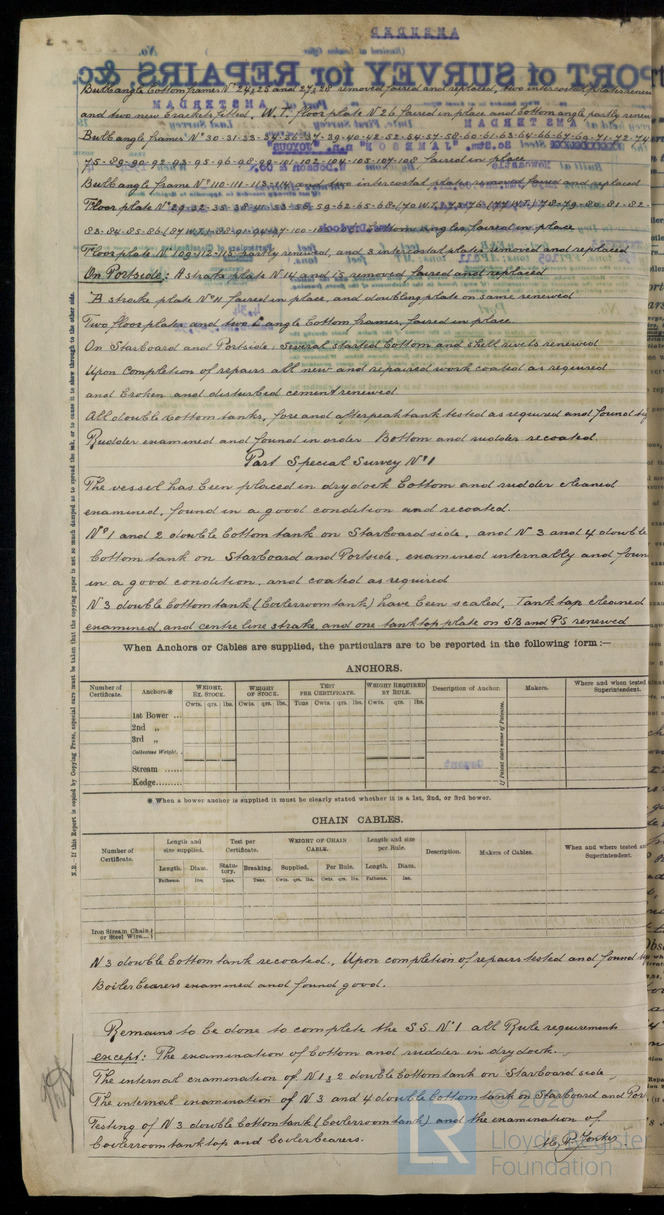 Bulb angle bottom frames No 24, 25 and 27, 28 removed faired and replaced, two intercostal plates renew
and two new brackets fitted, W.T. floor plate No 26 faired in place and bottom angle partly renew
Bulb angle frames No 30-31-33-34-36-37-39-40-42-52-54-57-58-60-61-63-64-66-67-69-71-72-74
75-89-90-92-93-95-96-98-99-101-102-104-105-107-108 faired in place
Bulb angle frame No 110-111-113-114 and two intercostal plates removed faired and replaced
Floor plate No 29-32-35-38-41-53-56-59-62-65-68-(70 W.T.)-73-76-(77 W.T.)-78-79-80-81-82-
83-84-85-86-(87 W.T.)-88-91-94-97-100- bottom angles faired in place
Floor plate No 109-112-115 partly renewed, and 3 intercostal plates removed and replaced
On Portside: A strake plate N 14 and 15 removed faired and replaced
A strake plate No 11 faired in place, and doubling plate on same renewed
Two floorplates and two b. angle bottom frames, faired in place.
On Starboard and Portside: Several started bottom and shell rivets renewed
Upon completion of repairs all new and repaired work coated as required
and broken and disturbed cement renewed.
All double bottom tanks, fore and afterpeak tank tested as required and found
Rudder examined and found in order Bottom and rudder recoated.
Part Special Survey No 1
The vessel has been placed in drydock bottom and rudder cleaned
examined, found in a good condition and recoated.
No 1 and 2 double bottom tank on Starboard side, and N 3 and 4 double
bottom tank on Starboard and Portside, examined internally and foun
in a good condition, and coated as required
N 3 double bottom tank (boilerroom tank) have been scaled, Tanktop cleaned
examined, and centre line strake, and one tank top plate on SB and PS renewed
When Anchors or Cables are supplied, the particulars are to be reported in the following form:—
ANCHORS.
Number of Certificate. Anchors.* WEIGHT, EX. STOCK. WEIGHT OF STOCK. TEST PER CERTIFICATE. WEIGHT REQUIRED BY RULE. Description of Anchor. If Patent state name of Patentee. Makers. Where and when tested Superintendent.
Cwts. qrs. lbs. Cwts. qrs. lbs. Tons Cwts. qrs. lbs. Cwts. qrs. lbs.
1st Bower ...
2nd „
3rd „
Collective Weight.
Stream ......
Kedge.........
* When a bower anchor is supplied it must be clearly stated whether it is a 1st, 2nd, or 3rd bower.
CHAIN CABLES.
Number of Certificate. Length and size supplied. Test per Certificate. WEIGHT OF CHAIN CABLE. Length and size per Rule. Description. Makers of Cables. When and where tested an Superintendent.
Length. Diam. Statutory. Breaking. Supplied. Per Rule. Length. Diam.
Fathoms. Ins. Tons. Tons. Cwts. qrs. lbs. Cwts. qrs. lbs. Fathoms. Ins.
Iron Stream Chain or Steel Wire...
N 3 double bottom tank recoated., Upon completion of repairs tested and found
Boilerbearers examined and found good.
Remains to be done to complete the S.S. No 1 all Rule requirements
except: The examination of bottom and rudder in drydock.
The internal examination of N 1, 2 double bottom tank on Starboard side,
The internal examination of N 3 and 4 double bottom tank on Starboard and Por
Testing of N 3 double bottom tank (boilerroom tank) and the examination of
boilerroom tanktop and boilerbearers.
N.B. If this Report is copied by Copying Press, especial care must be taken that the copying paper is not so much damped as to spread the ink, or to cause it to show through to the other side.
© 2020
Lloyd's Register
Foundation
LR